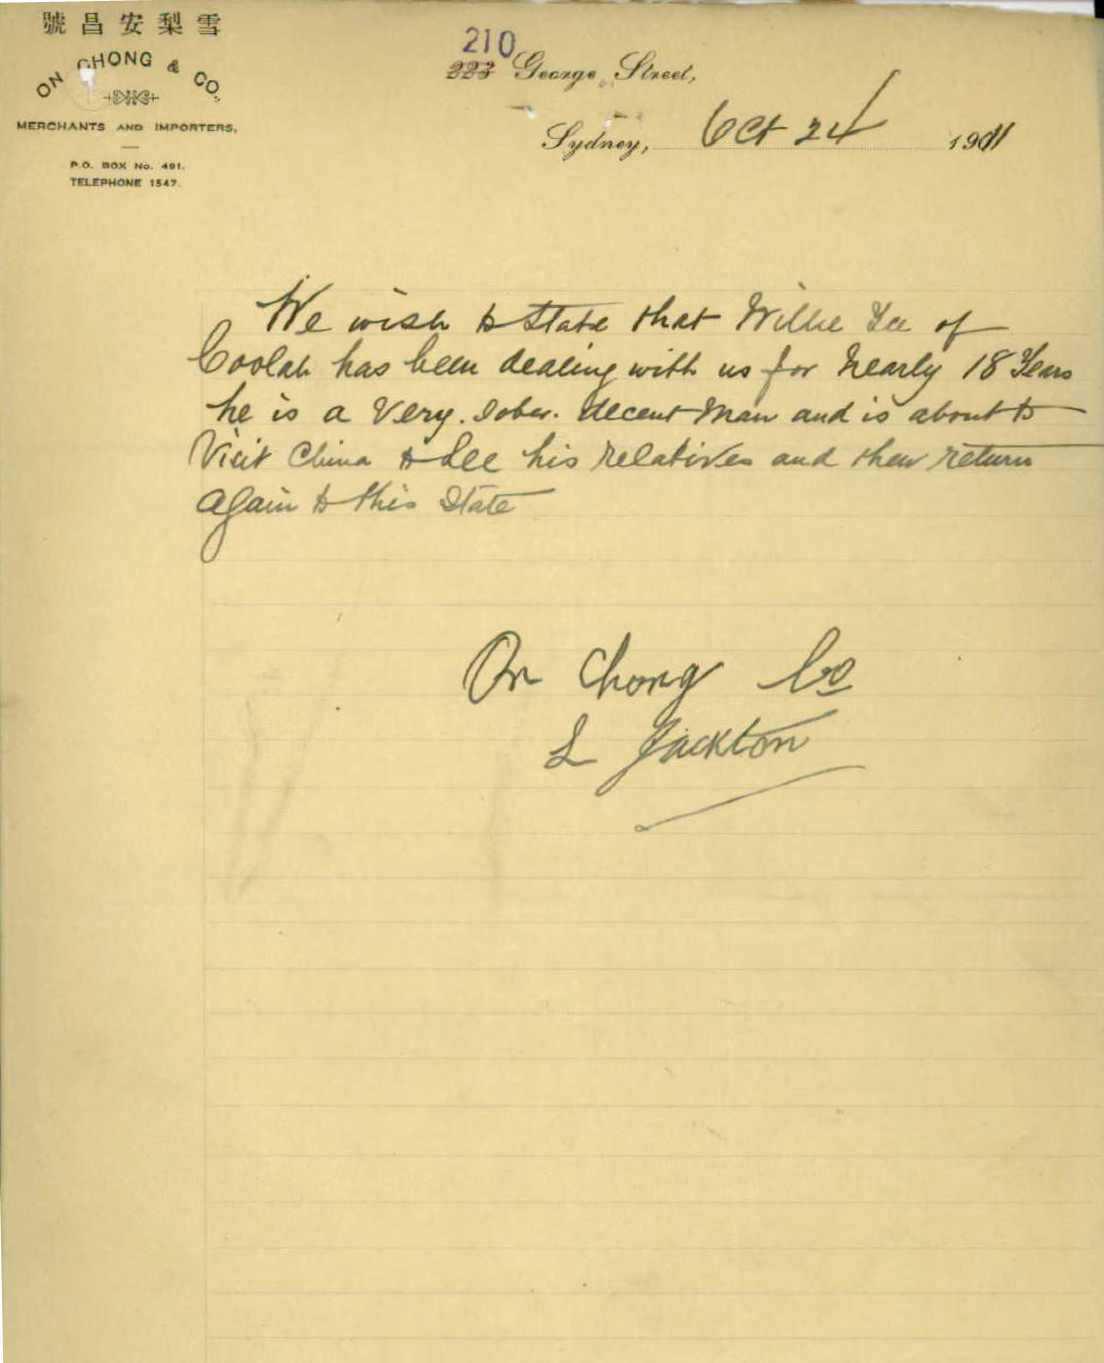 號昌安梨雪
ON CHONG & CO.,
MERCHANTS AND IMPORTERS,
P.O. BOX No. 491.
TELEPHONE 1547.
210
223 George Street,
Sydney, Oct 24 1911
We wish to state that Willie Lee of
Coolah has been dealing with us for Nearly 18 Years
he is a Very. Sober. decent Man and is about to
Visit China to See his relatives and then return
again to this State
On Chong Co
L Jackton